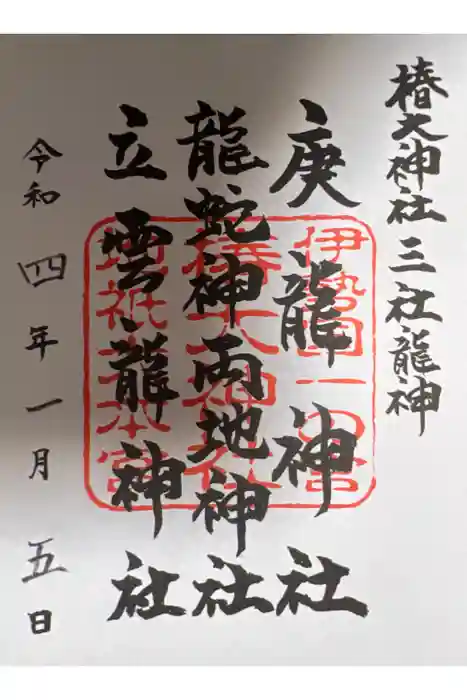 椿大神社 三社龍神
庚龍神社
龍蛇神両地神社
立雲龍神社
令和四年一月五日
伊勢国一の宮
椿大神社
地祇大本宮